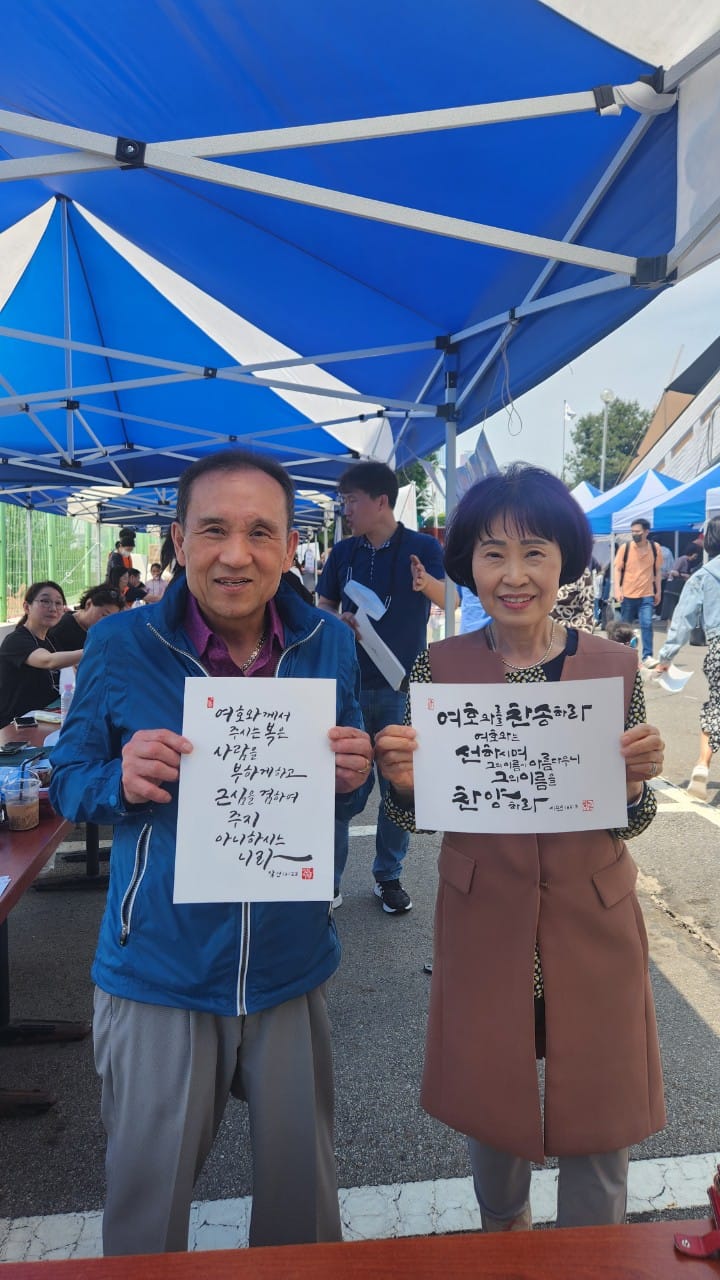 여호와께서
주시는 복은
사람을
부하게 하고
근심을 겸하여
주지
아니하시느
니라
잠언 10:22
여호와를 찬송하라
여호와는
선하시며
그의 이름이 아름다우니
그의 이름을
찬양하라
시편 135:3